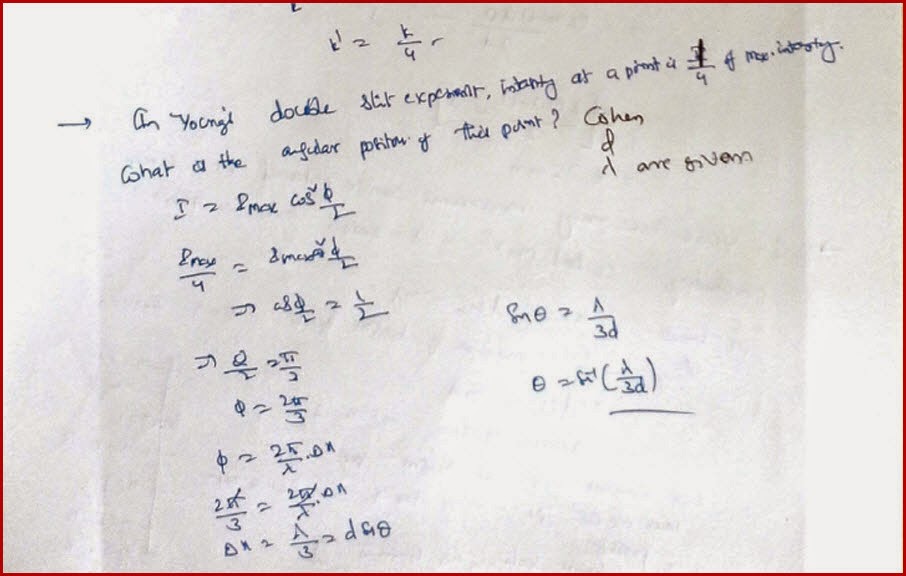 k' = k/4
→ In Young's double slit experiment, intensity at a point is 1/4 of max. intensity.
What is the angular position of this point? When d λ are given
I = Imax cos² φ/2
Imax/4 = Imax cos² φ/2
⇒ cos φ/2 = 1/2
⇒ φ/2 = π/3
φ = 2π/3
φ = 2π/λ . Δx
2π/3 = 2π/λ . Δx
Δx = λ/3 = d sinθ
Sinθ = λ/3d
θ = sin⁻¹(λ/3d)